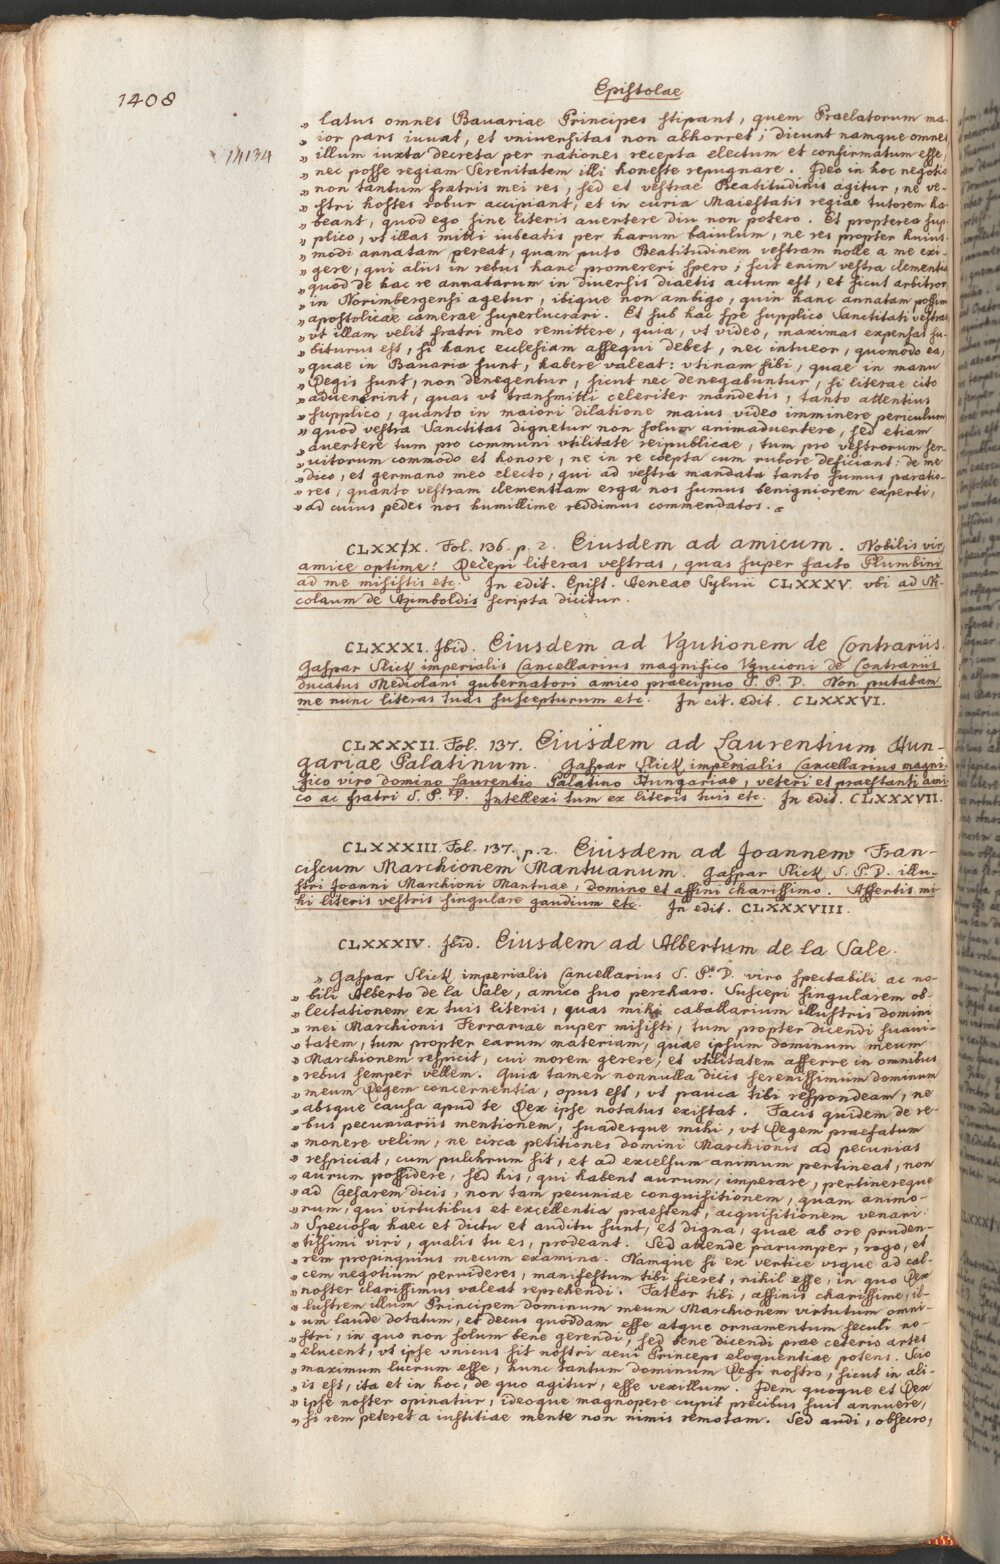 1408
Epistolae
„ latus omnes Bauariae Principes stipant, quem Praelatorum ma-
„ ior pars iuuat, et vniuersitas non abhorret; dicunt namque omnes
14134
„ illum iuxta decreta per nationes recepta electum et confirmatum esse,
„ nec posse regiam Serenitatem illi honeste repugnare. Ideo in hoc negotio
„ non tantum fratris mei res, sed et vestrae Beatitudinis agitur, ne ve-
„ stri hostes robur accipiant, et in curia Maiestatis regiae tutorem ha-
„ beant, quod ego sine literis auertere diu non potero. Et propterea sup-
„ plico, vt illas mitti iubeatis per harum baiulum, ne res propter huius-
„ modi annatam pereat, quam puto Beatitudinem vestram nolle a me exi-
„ gere, qui aliis in rebus hanc promereri spero; scit enim vestra clementia
„ quod de hac re annatarum in diuersis diaetis actum est, et sicut arbitror
„ in Norimbergensi agetur, ibique non ambigo, quin hanc annatam possim
„ apostolicae camerae superlucrari. Et sub hac spe supplico Sanctitati vestrae,
„ vt illam velit fratri meo remittere, quia, vt video, maximas expensas ha-
„ biturus est, si hanc ecclesiam assequi debet, nec intueor, quomodo ea,
„ quae in Bauaria sunt, habere valeat: vtinam sibi, quae in manu
„ Regis sunt, non denegentur, sicut nec denegabuntur, si literae cito
„ aduenerint, quas vt transmitti celeriter mandetis, tanto attentius
„ supplico, quanto in maiori dilatione maius video imminere periculum
„ quod vestra Sanctitas dignetur non solum animaduertere, sed etiam
„ auertere tum pro communi vtilitate reipublicae, tum pro vestrorum ser-
„ uitorum commodo et honore, ne in re coepta cum rubore deficiant: de me
„ dico, et germano meo electo, qui ad vestra mandata tanto sumus paratio-
„ res, quanto vestram clementiam erga nos sumus benigniorem experti,
„ ad cuius pedes nos humillime reddimus commendatos.
CLXXIX. Fol. 136. p. 2. Eiusdem ad amicum. Nobilis vir,
amice optime! Recepi literas vestras, quas super facto Plumbini
ad me misistis etc. In edit. Epist. Aeneae Syluii CLXXXV. vbi ad Ni-
colaum de Azimboldis scripta dicitur.
CLXXXI. Ibid. Eiusdem ad Vgutionem de Contrariis.
Gaspar Slick imperialis Cancellarius magnifico Vgucioni de Contrariis
ducatus Mediolani gubernatori amico praecipuo S. P. D. Non putabam
me nunc literas tuas suscepturum etc. In cit. edit. CLXXXVI.
CLXXXII. Fol. 137. Eiusdem ad Laurentium Hun-
gariae Palatinum. Gaspar Slick imperialis Cancellarius magni-
fico viro domino Laurentio Palatino Hungariae, veteri et praestanti ami-
co ac fratri S. P. D. Intellexi tum ex literis tuis etc. In edit. CLXXXVII.
CLXXXIII. Fol. 137. p. 2. Eiusdem ad Joannem Fran-
ciscum Marchionem Mantuanum. Gaspar Slick S. P. D. illu-
stri Joanni Marchioni Mantuae, domino et affini charissimo. Affertis mi-
hi literis vestris singulare gaudium etc. In edit. CLXXXVIII.
CLXXXIV. Ibid. Eiusdem ad Albertum de la Sale.
„ Gaspar Slick imperialis Cancellarius S. P. D. viro spectabili ac no-
„ bili Alberto de la Sale, amico suo percharo. Suscepi singularem ob-
„ lectationem ex tuis literis, quas mihi caballarium illustris domini
„ mei Marchionis Ferrariae nuper misisti, tum propter dicendi suaui-
„ tatem, tum propter earum materiam, quae ipsum dominum meum
„ Marchionem respicit, cui morem gerere, et vtilitatem afferre in omnibus
„ rebus semper vellem. Quia tamen nonnulla dicis serenissimum dominum
„ meum Regem concernentia, opus est, vt pauca tibi respondeam, ne
„ absque causa apud te Rex ipse notatus existat. Facis quidem de re-
„ bus pecuniariis mentionem, suadesque mihi, vt Regem praefatum
„ monere velim, ne circa petitiones domini Marchionis ad pecunias
„ respiciat, cum pulchrum sit, et ad excelsum animum pertineat, non
„ aurum possidere, sed his, qui habent aurum, imperare, pertinereque
„ ad Caesarem dicis, non tam pecuniae conquisitionem, quam animo-
„ rum, qui virtutibus et excellentia praestent, acquisitionem venari.
„ Speciosa haec et dictu et auditu sunt, et digna, quae ab ore pruden-
„ tissimi viri, qualis tu es, prodeant. Sed attende parumper, rogo, et
„ rem propinquius mecum examina. Namque si ex vertice vsque ad cal-
„ cem negotium peruideres, manifestum tibi fieret, nihil esse, in quo Rex
„ noster clarissimus valeat reprehendi. Fateor tibi, affinis charissime, il-
„ lustrem illum Principem dominum meum Marchionem virtutum omni-
„ um laude dotatum, et decus quoddam esse atque ornamentum seculi no-
„ stri, in quo non solum bene gerendi, sed bene dicendi prae ceteris artes
„ elucent, vt ipse vnicus sit nostri aeui Princeps eloquentiae potens. Scio
„ maximum lucrum esse, hunc tantum dominum Regi nostro, sicut in ali-
„ is est, ita et in hoc, de quo agitur, esse vexillum. Idem quoque et Rex
„ ipse noster opinatur, ideoque magnopere cupit precibus suis annuere,
„ si rem peteret a iustitiae mente non nimis remotam. Sed audi, obsecro,